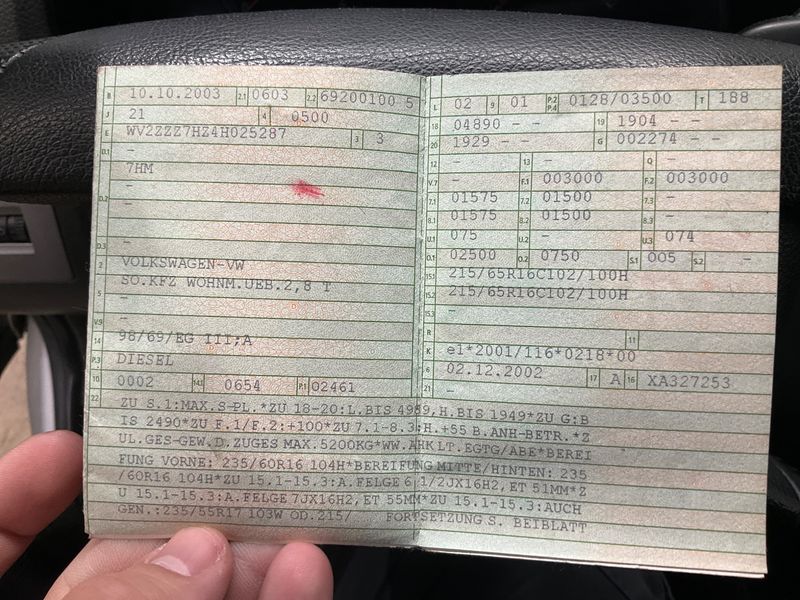 B 10.10.2003 2.1 0603 2.2 69200100 5
J 21 4 0500
E WV2ZZZ7HZ4H025287 3 3
D.1 -
7HM
-
D.2 -
-
D.3 -
2 VOLKSWAGEN-VW
5 SO.KFZ WOHNM.UEB.2,8 T
-
V.9 -
14 98/69/EG III;A
P.3 DIESEL
10 0002 14.1 0654 P.1 02461
L 02 9 01 P.2 P.4 0128/03500 T 188
18 04890 - - 19 1904 - -
20 1929 - - G 002274 - -
12 - 13 - Q -
V.7 - F.1 003000 F.2 003000
7.1 01575 7.2 01500 7.3 -
8.1 01575 8.2 01500 8.3 -
U.1 075 U.2 - U.3 074
O.1 02500 O.2 0750 S.1 005 S.2 -
15.1 215/65R16C102/100H
15.2 215/65R16C102/100H
15.3 -
R 11
K e1*2001/116*0218*00
6 02.12.2002 17 A 16 XA327253
21 -
22 ZU S.1:MAX.S-PL.*ZU 18-20:L.BIS 4989,H.BIS 1949*ZU G:B
IS 2490*ZU F.1/F.2:+100*ZU 7.1-8.3:H.+55 B.ANH-BETR.*Z
UL.GES-GEW.D.ZUGES MAX.5200KG*WW.AHK LT.EGTG/ABE*BEREI
FUNG VORNE: 235/60R16 104H*BEREIFUNG MITTE/HINTEN: 235
/60R16 104H*ZU 15.1-15.3:A.FELGE 6 1/2JX16H2,ET 51MM*Z
U 15.1-15.3:A.FELGE 7JX16H2,ET 55MM*ZU 15.1-15.3:AUCH
GEN.:235/55R17 103W OD.215/ FORTSETZUNG S. BEIBLATT